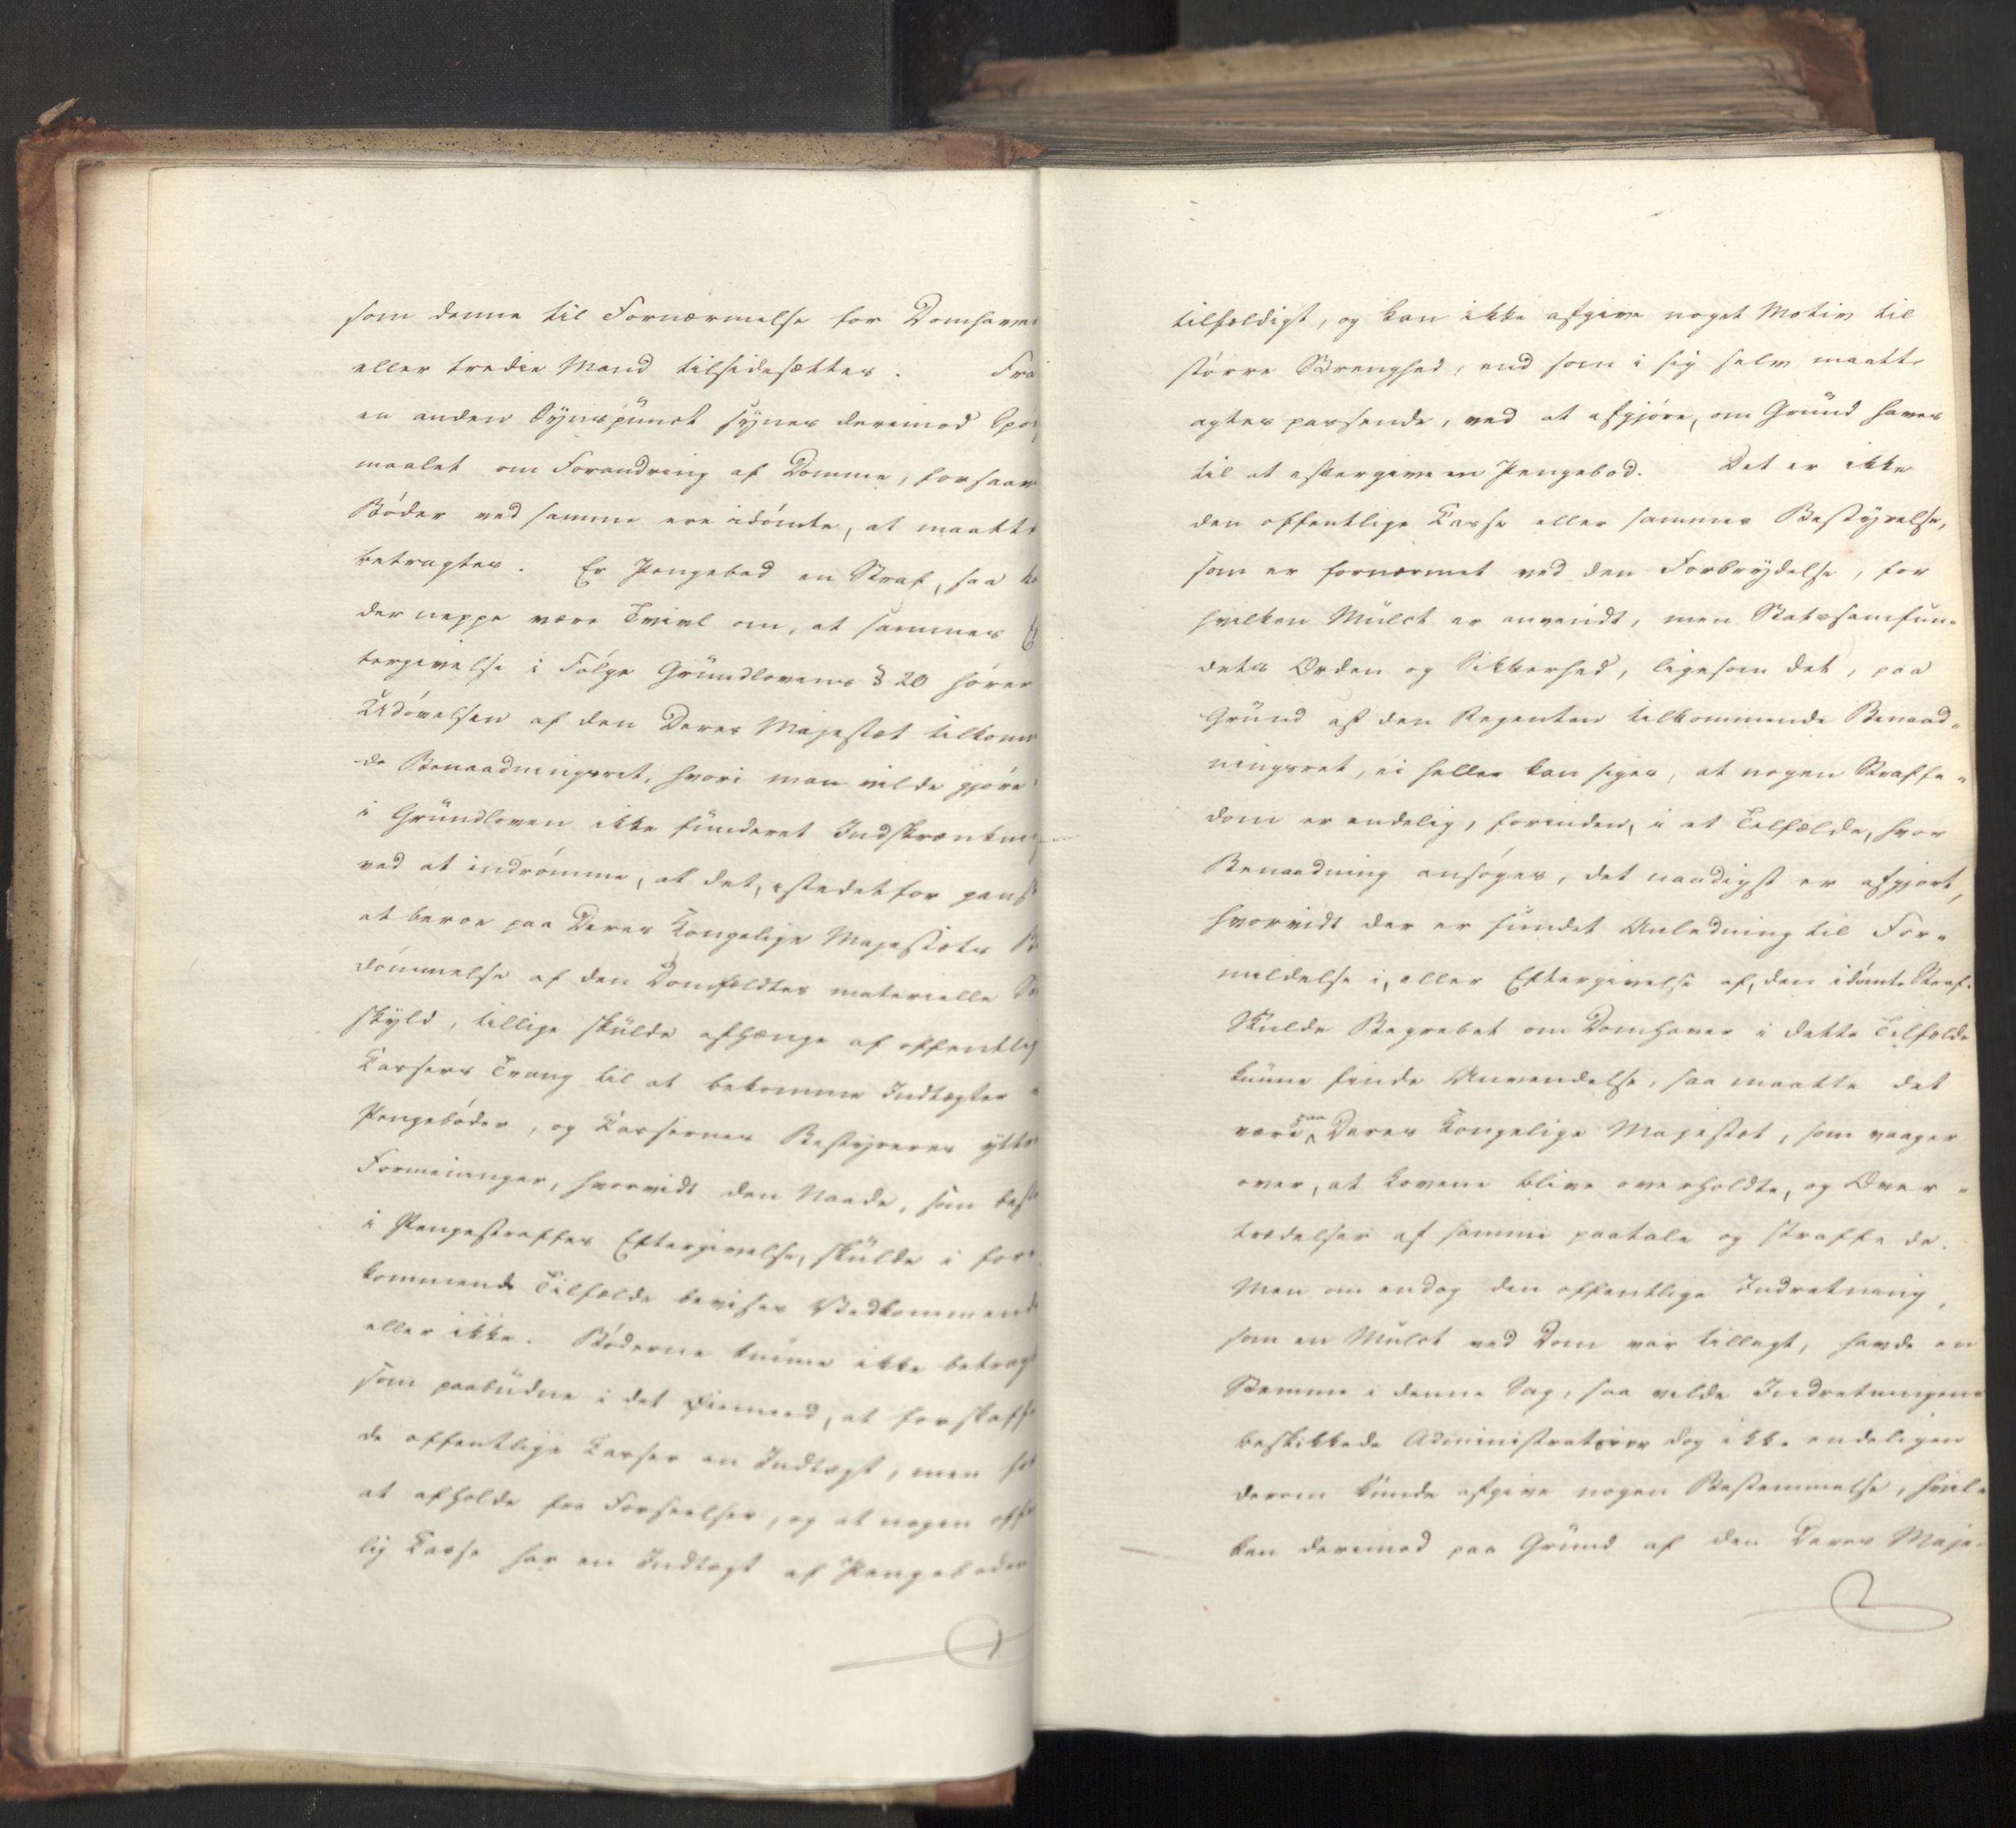 som denne til Fornærmelse for Domhaver
eller tredie Mand tilsidesættes. Fra
en anden Synspunct synes derimod Spørs
maalet om Forandring af Domme, forsaavi
Bøder ved samme ere idømte, at maatte
betragtes. Er Pengebod en Straf, saa ka
der neppe være Tvivl om, at sammes Ef
tergivelse i Følge Grundlovens § 20 hører
Udøvelsen af den Deres Majestæt tilkomm
de Benaadningsret, hvori man vilde gjøre
i Grundloven ikke funderet Indskrænkning
ved at indrømme, at det, istedetfor gansk
at beroe paa Deres Kongelige Majestæts Be
dømmelse af den Domfeldtes materielle
skyld, tillige skulde afhænge af offentlig
Cassers Trang til at bekomme Indtægter
Pengebøder, og Cassernes Bestyreres yttre
Formeininger, hvorvidt den Naade, som best
i Pengestraffes Eftergivelse, skulde i fore
kommende Tilfælde bevises Vedkommende
eller ikke. Bøderne kunne ikke betragt
som paabudne i det Øiemeed, at forskaffe
de offentlige Casser en Indtægt, men for
at afholde fra Forseelser, og at nogen offe
lig Casse har en Indtægt af Pengebøder
tilfældigt, og kan ikke afgive noget Motiv til
større Strenghed, end som i sig selv maatte
agtes passende, ved at afgjøre, om Grund haves
til at eftergive en Pengebod. Det er ikke
den offentlige Casse eller sammes Bestyrelse,
som er fornærmet ved den Forbrydelse, for
hvilken Mulct er anvendt, men Statssamfun-
dets Orden og Sikkerhed, ligesom det, paa
Grund af den Regenten tilkommende Benaad-
ningsret, ei heller kan siges, at nogen Straffe-
dom er endelig, forinden, i et Tilfælde, hvor
Benaadning ansøges, det naadigst er afgjort,
hvorvidt der er fundet Anledning til For-
mildelse i, eller Eftergivelse af, den idømte Straf.
Skulde Begrebet om Domhaver i dette Tilfælde
kunne finde Anvendelse, saa maatte det
være paa Deres Kongelige Majestæt, som vaager
over, at Lovene blive overholdte, og Over-
trædelser af samme paatale og straffede.
Men om endog den offentlige Indretning,
som en Mulct ved Dom var tillagt, havde en
Stemme i denne Sag, saa vilde Indretningens
beskikkede Administratorer dog ikke endeligen
derom kunde afgive nogen Bestemmelse, hvil-
ken derimod paa Grund af den Deres Maje-